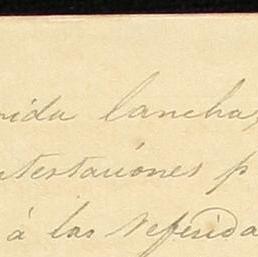 rida lancha,
ntestaciones p
á las referida